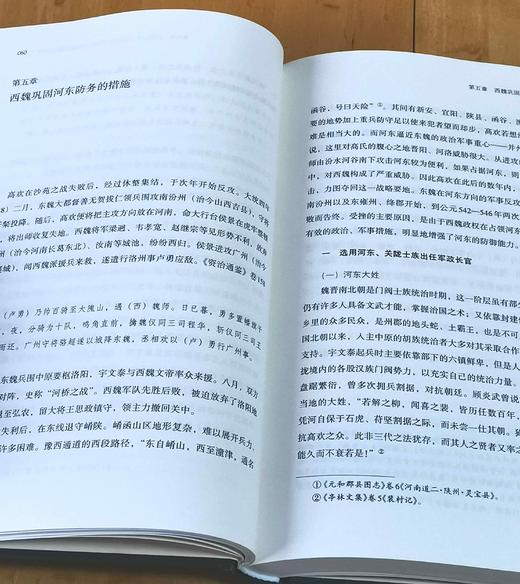 060
第五章
西魏巩固河东防务的措施
高欢在沙苑之战失败后，经过休整集结，于次年开始反攻。大统四年
8）二月，东魏大都督善无贺拔仁领兵围攻南汾州（治今山西吉县），守将
子粲投降。随后，高欢便将把主攻方向放在河南，命大行台侯景在虎牢整顿
，将出师收复失地。西魏将军梁迴、韦孝宽、赵继宗等见形势不利，放弃
川（治今河南长葛东北）、汝南等城池，纷纷西归。侯景进攻广州（治今
襄城），闻西魏派援兵来救，遂遣行洛州事卢勇应敌。《资治通鉴》卷158
（卢勇）乃帅百骑至大隗山，遇（西）魏师。日已暮，勇多置幡旗于
，夜，分骑为十队，鸣角直前，擒魏仪同三司程华，斩仪同三司王
而还。广州守将骆超遂以城降东魏，丞相欢以（卢）勇行广州事。
东魏兵围中原要枢洛阳，宇文泰与西魏文帝率众来援。八月，双方
对阵，史称“河桥之战”。西魏军队先胜后败，被迫放弃了洛阳地
退至弘农，留大将王思政镇守，领主力撤回关中。
失利后，在东线退守崤陕。崤函山区地形复杂，难以展开兵力，
许多困难。豫西通道的西段路径，“东自崤山，西至潼津，通名
第五章　西魏巩固
函谷，号曰天险”①。其间有新安、宜阳、陕县、函谷、
要的地势加上重兵防守足以使来犯者望而却步，高欢若想
难是相当大的。而河东逼近东魏的政治军事重心——并州
腹，这里对高氏的腹心之地晋阳、河洛威胁很大。从进攻
师由汾水河谷南下攻击河东较为便利，如果占据河东，则
域，对西魏构成了严重威胁。因此高欢在此后的数年内，
击，力图夺回这一战略要地。东魏在河东方向的军事反攻
南汾州以及东雍州、绛郡，终到公元542—546年两次
败而告终。受挫的主要原因，是由于西魏政权在占领河东
有效的政治、军事措施，明显地增强了河东的防御能力。
一　选用河东、关陇士族出任军政长官
（一）河东大姓
魏晋南北朝是门阀士族统治时期，这一阶层虽有部分
仍有许多人具备文武才能，掌握治国之术；又依靠封建
乡里的众多民众，是州郡的地头蛇、土霸王，也是不可
国北朝以来，入主中原的胡族统治者大多对其采取合作
回。宇文泰起兵时主要依靠部下的六镇鲜卑，但是人
拢境内的各股汉族门阀势力，以充实自己的统治力量。
盘踞繁衍，曾多次拥兵割据，对抗朝廷。顾炎武曾说
当地的大姓，“若解之柳，闻喜之裴，皆历任数百年，
凭河自保于石虎、苻坚割据之际，而未尝一仕其朝。
抗高欢之众。此非三代之法犹存，而其人之贤者又率之
能久而不衰若是！”②
①《元和郡县图志》卷6《河南道二·陕州·灵宝县》。
②《亭林文集》卷5《裴村记》。